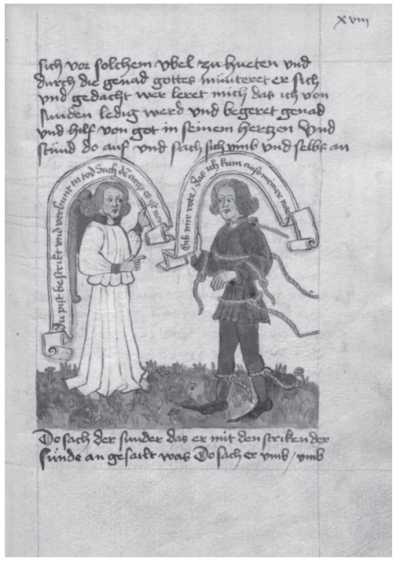 xviii
sich vor solchem vbel zu hueten vnd
durch die genad gottes münteret er sich
vnd gedacht wer leret mich das ich von
sunden ledig werd vnd begeret genad
vnd hilf von got in seinem hertzen Vnd
stund do auf vnd sach sich vmb vnd selbs an
Du pist bestrikt vnd verbunt in tod Such
Gib mir rote das ich kum auß meiner not
Do sach der sunder das er mit den striken der
sünde an gesailt was Do sach er vmb / vmb